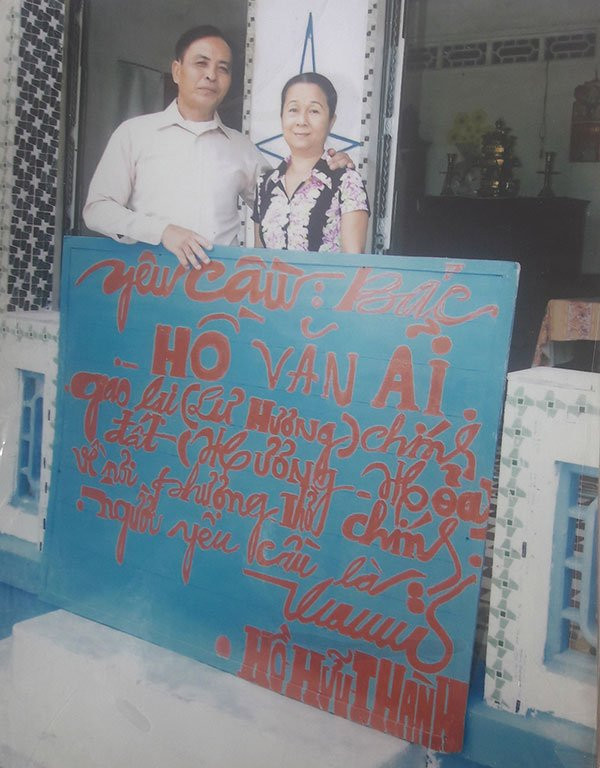 yêu cầu: Bác
HỒ VĂN ẨI.
gào lại (Lư Hương) chính
đất - (Hương - Hỏa
về nơi thượng thủ chính.
. người yêu cầu là:
. HỒ HỮU THÀNH